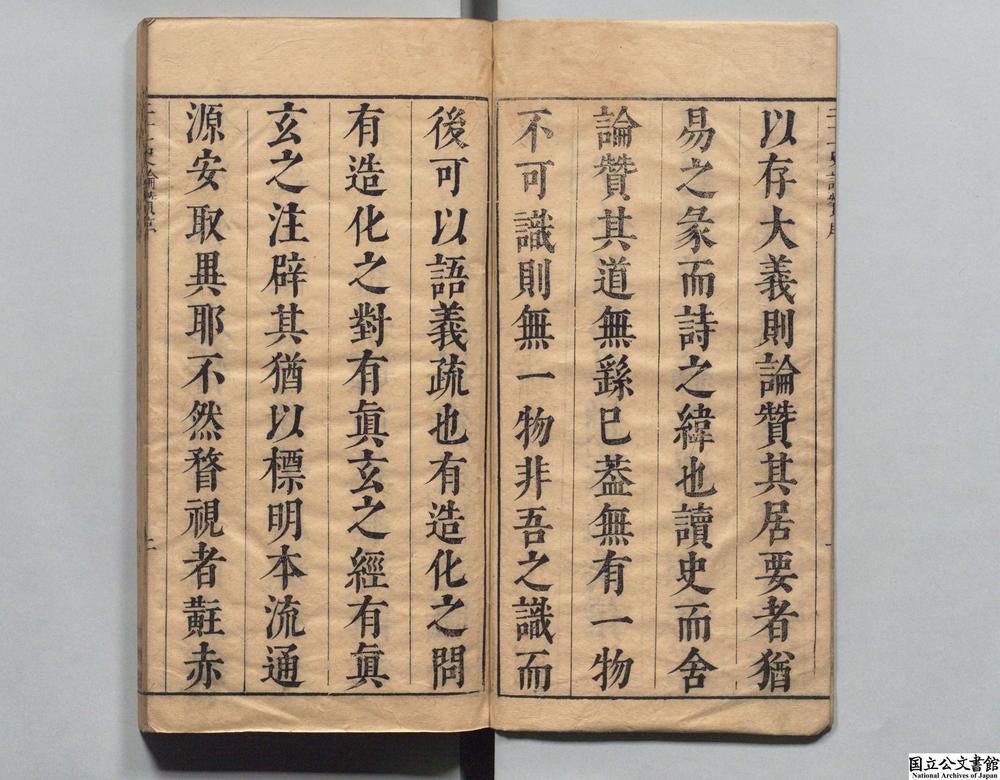 以存大義則論贊其居要者猶
易之彖而詩之緯也讀史而舍
論贊其道無繇巳葢無有一物
不可識則無一物非吾之識而
後可以語義疏也有造化之問
有造化之對有眞玄之經有眞
玄之注辟其猶以標明本流通
源安取異耶不然瞀視者黈赤
国立公文書館
National Archives of Japan